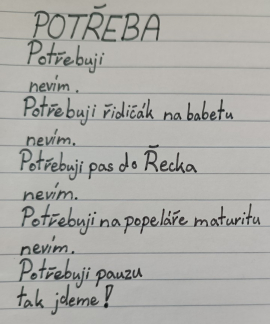 POTŘEBA
Potřebuji
nevím.
Potřebuji řidičák na babetu
nevím.
Potřebuji pas do Řecka
nevím.
Potřebuji na popeláře maturitu
nevím.
Potřebuji pauzu
tak jdeme!